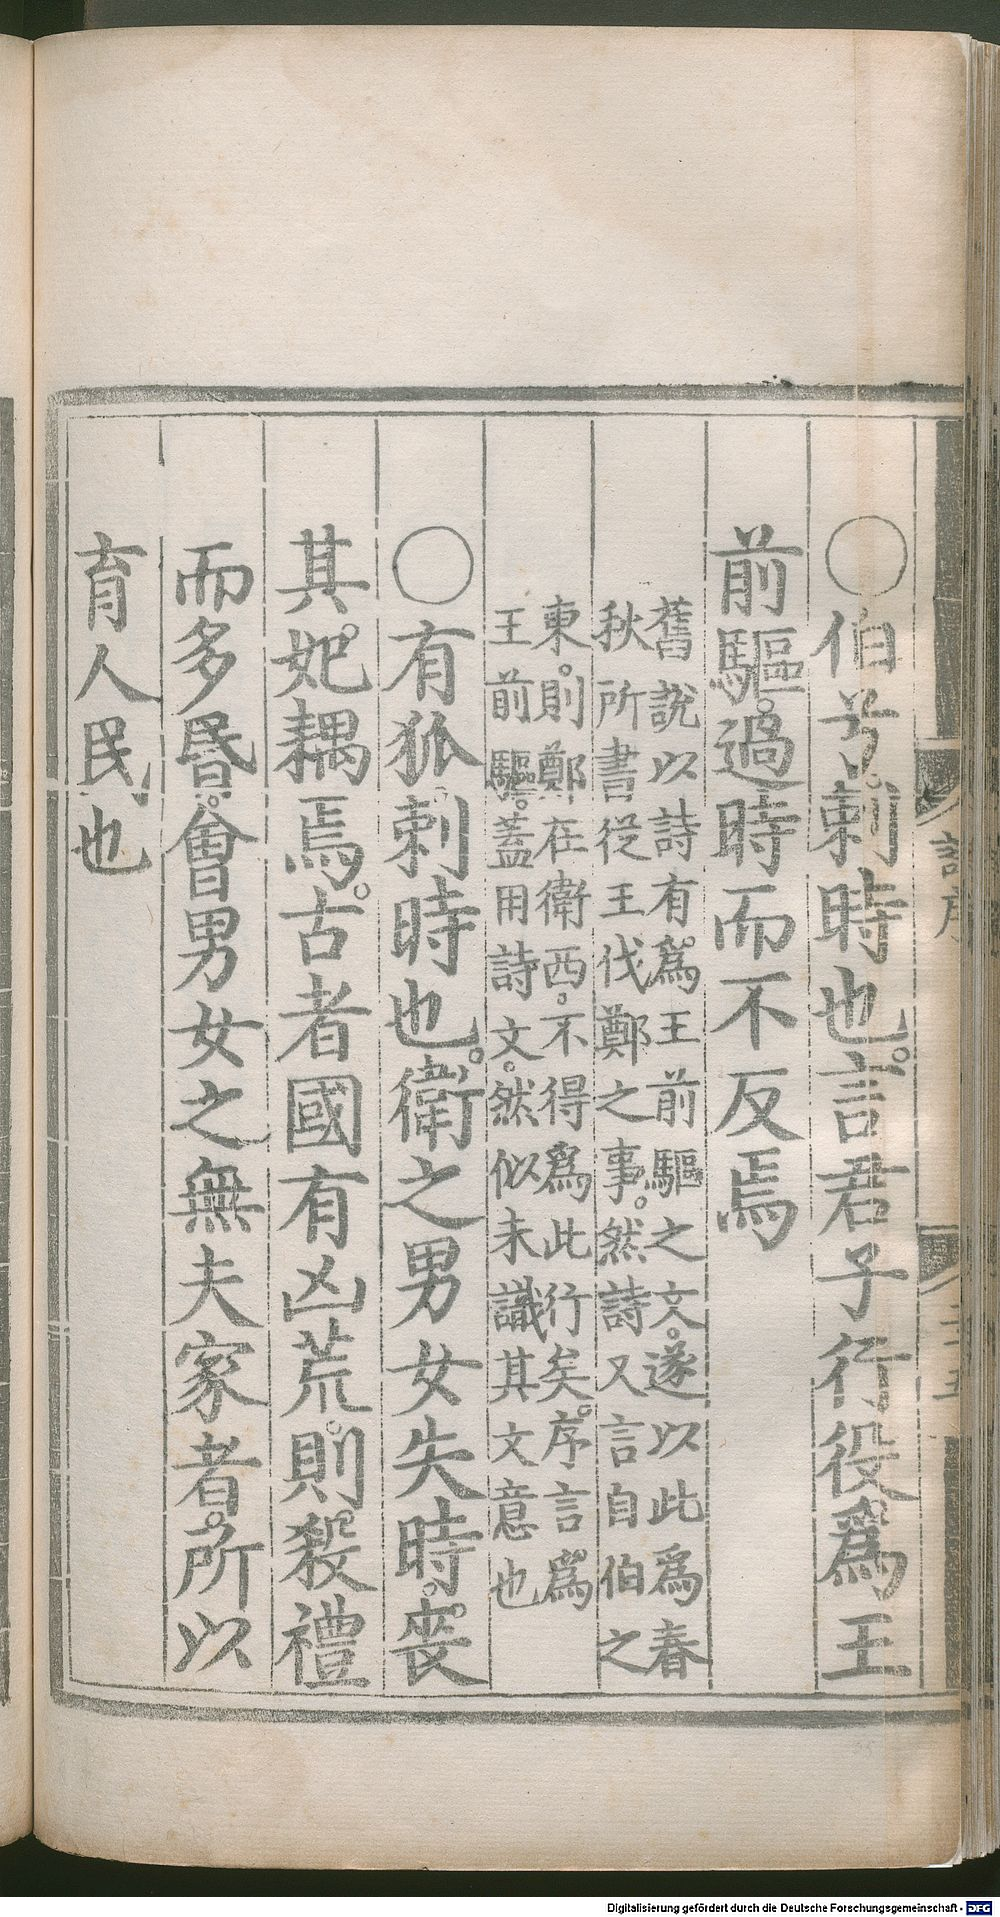 ○伯兮。刺時也。言君子行役。爲王
前驅。過時而不反焉
舊說以詩有爲王前驅之文。遂以此爲春
秋所書從王伐鄭之事。然詩又言自伯之
東。則鄭在衛西。不得爲此行矣。序言爲
王前驅。蓋用詩文。然似未識其文意也
○有狐。刺時也。衛之男女失時。喪
其妃耦焉。古者國有凶荒。則殺禮
而多昬。會男女之無夫家者。所以
育人民也
Digitalisierung gefördert durch die Deutsche Forschungsgemeinschaft - DFG